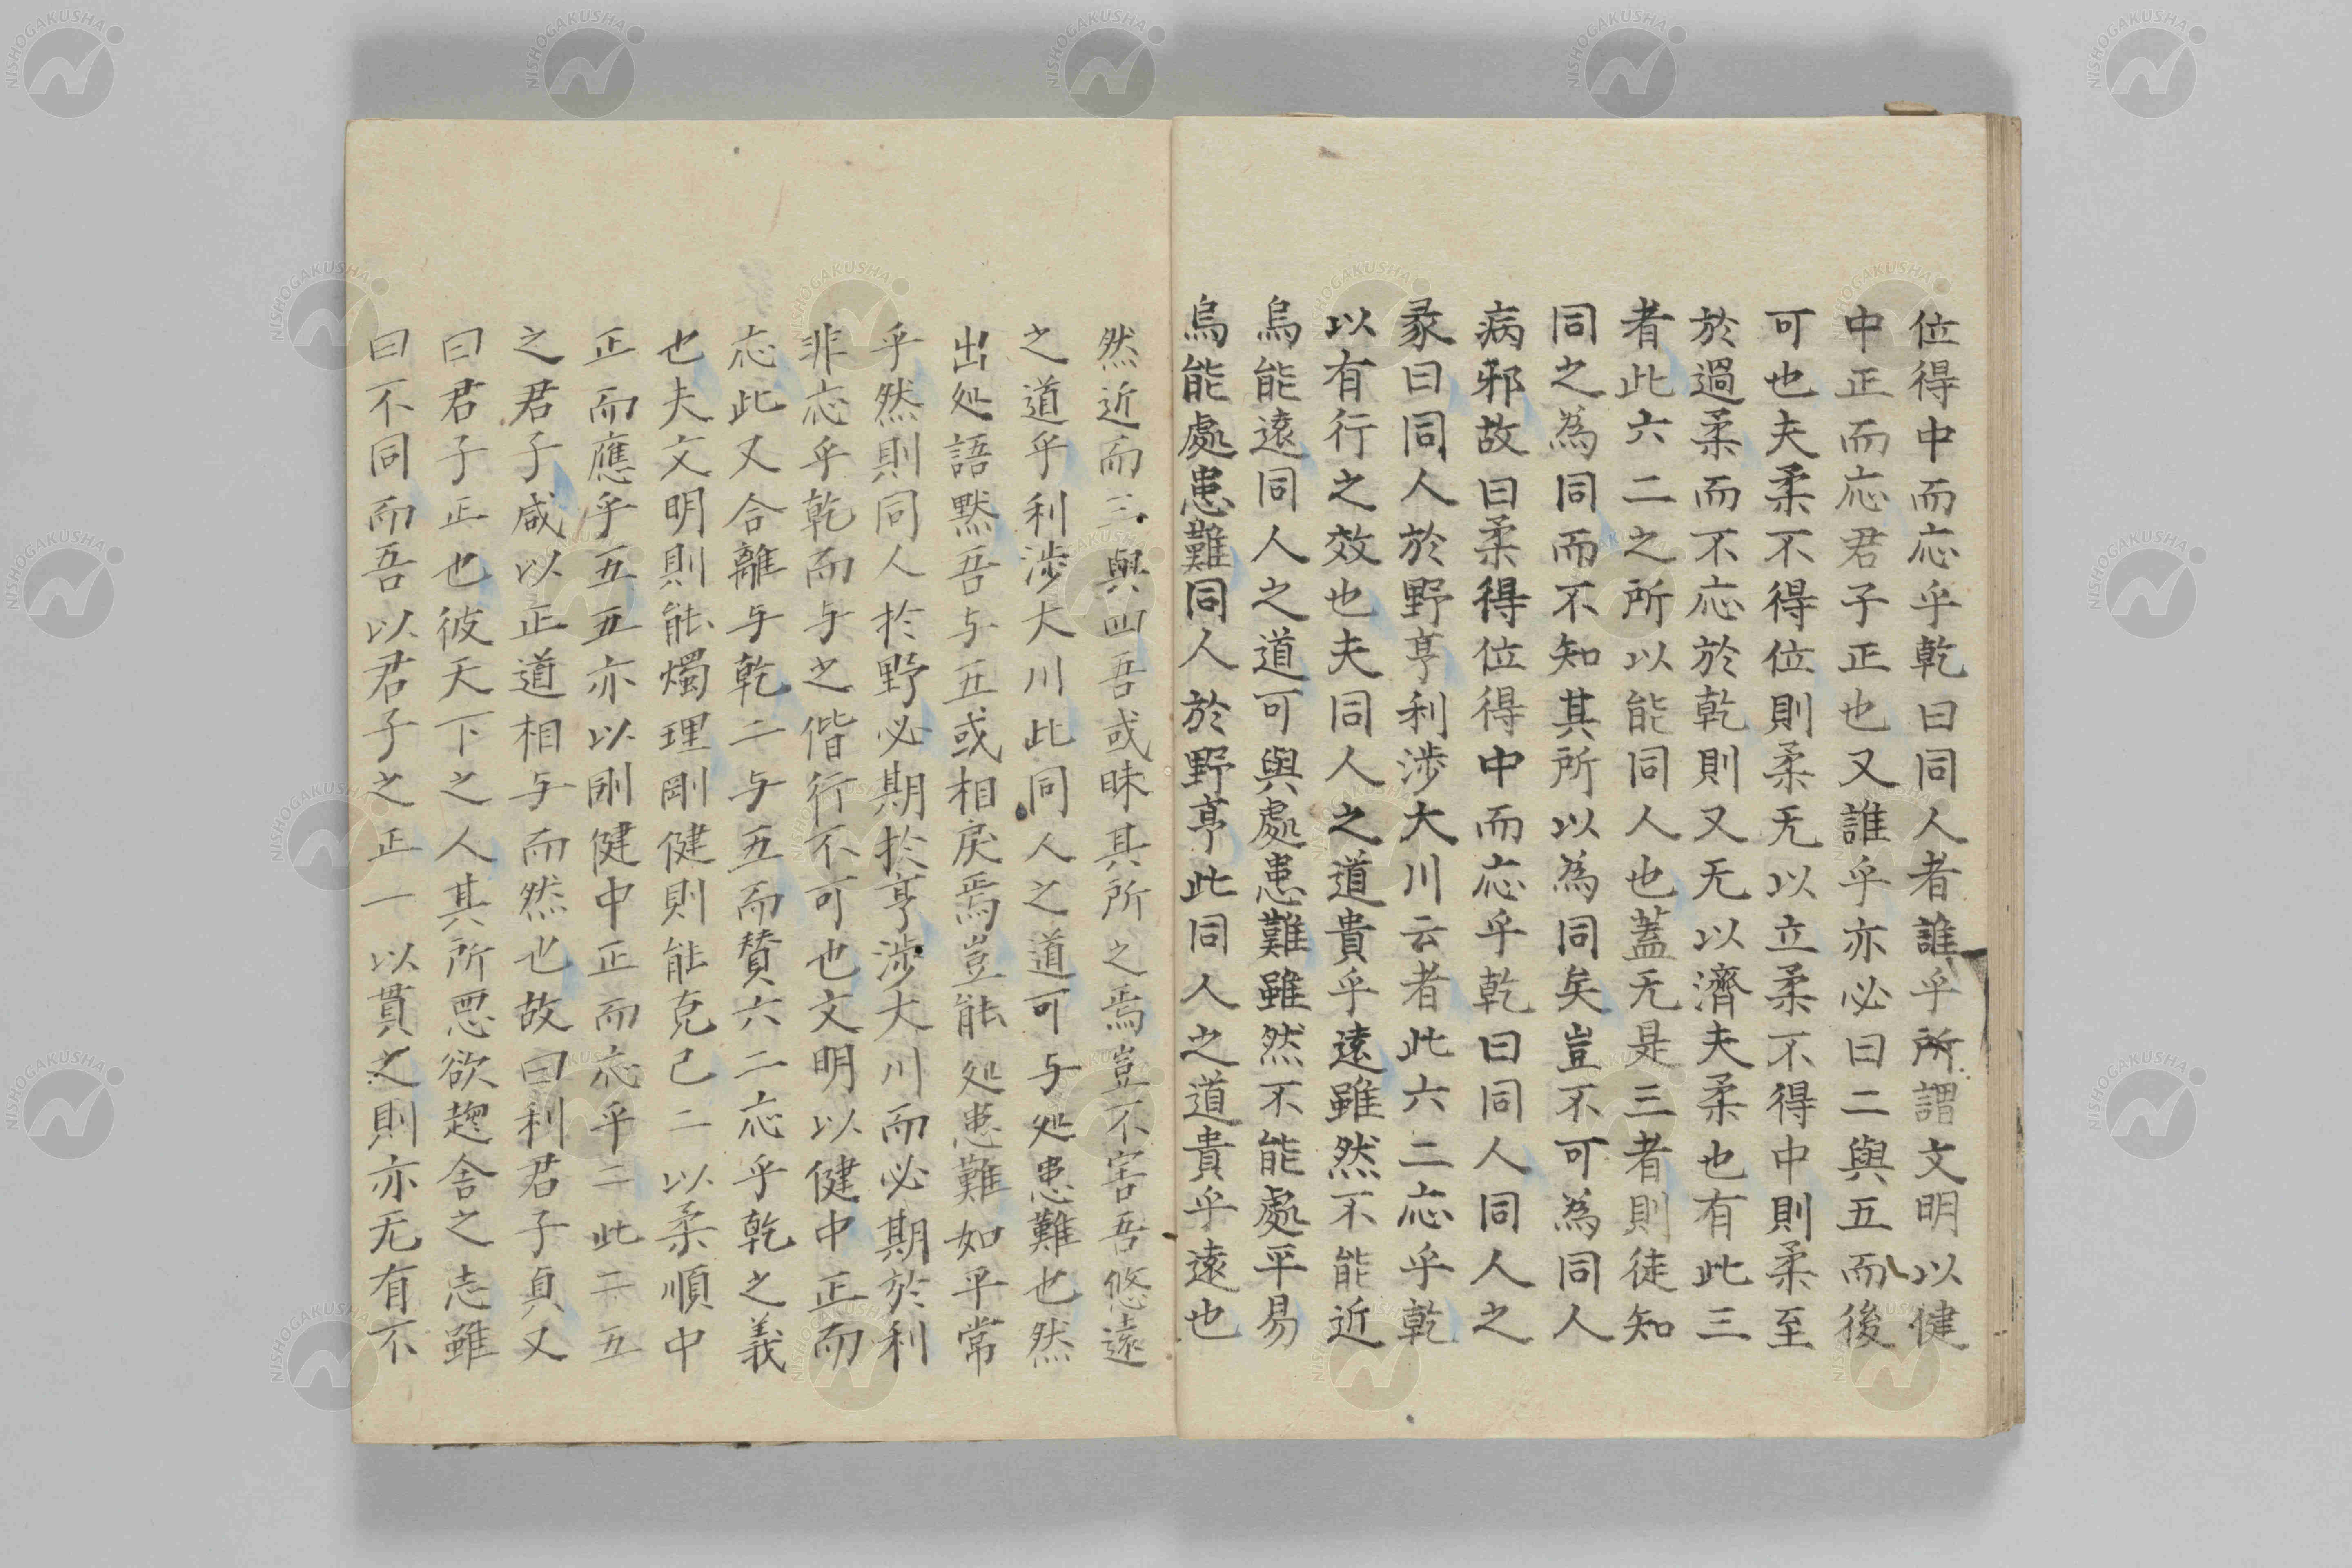 位得中而応乎乾曰同人者誰乎所謂文明以健
中正而応君子正也又誰乎亦必曰二與五而後
可也夫柔不得位則柔无以立柔不得中則柔至
於過柔而不応於乾則又无以濟夫柔也有此三
者此六二之所以能同人也蓋无是三者則徒知
同之為同而不知其所以為同矣豈不可為同人
病邪故曰柔得位得中而応乎乾曰同人同人之
彖曰同人於野亨利涉大川云者此六二応乎乾
以有行之效也夫同人之道貴乎遠雖然不能近
烏能遠同人之道可與處患難雖然不能處平易
烏能處患難同人於野亨此同人之道貴乎遠也
然近而三與四吾或昧其所之焉豈不害吾悠遠
之道乎利涉大川此同人之道可与処患難也然
出処語黙吾与五或相戾焉豈能処患難如平常
乎然則同人於野必期於亨涉大川而必期於利
非応乎乾而与之偕行不可也文明以健中正而
応此又合離与乾二与五而賛六二応乎乾之義
也夫文明則能燭理剛健則能克己二以柔順中
正而應乎五五亦以剛健中正而応乎二此二五
之君子咸以正道相与而然也故曰利君子貞又
曰君子正也彼天下之人其所悪欲趨舍之志雖
曰不同而吾以君子之正一以貫之則亦无有不
NISHOGAKUSHA